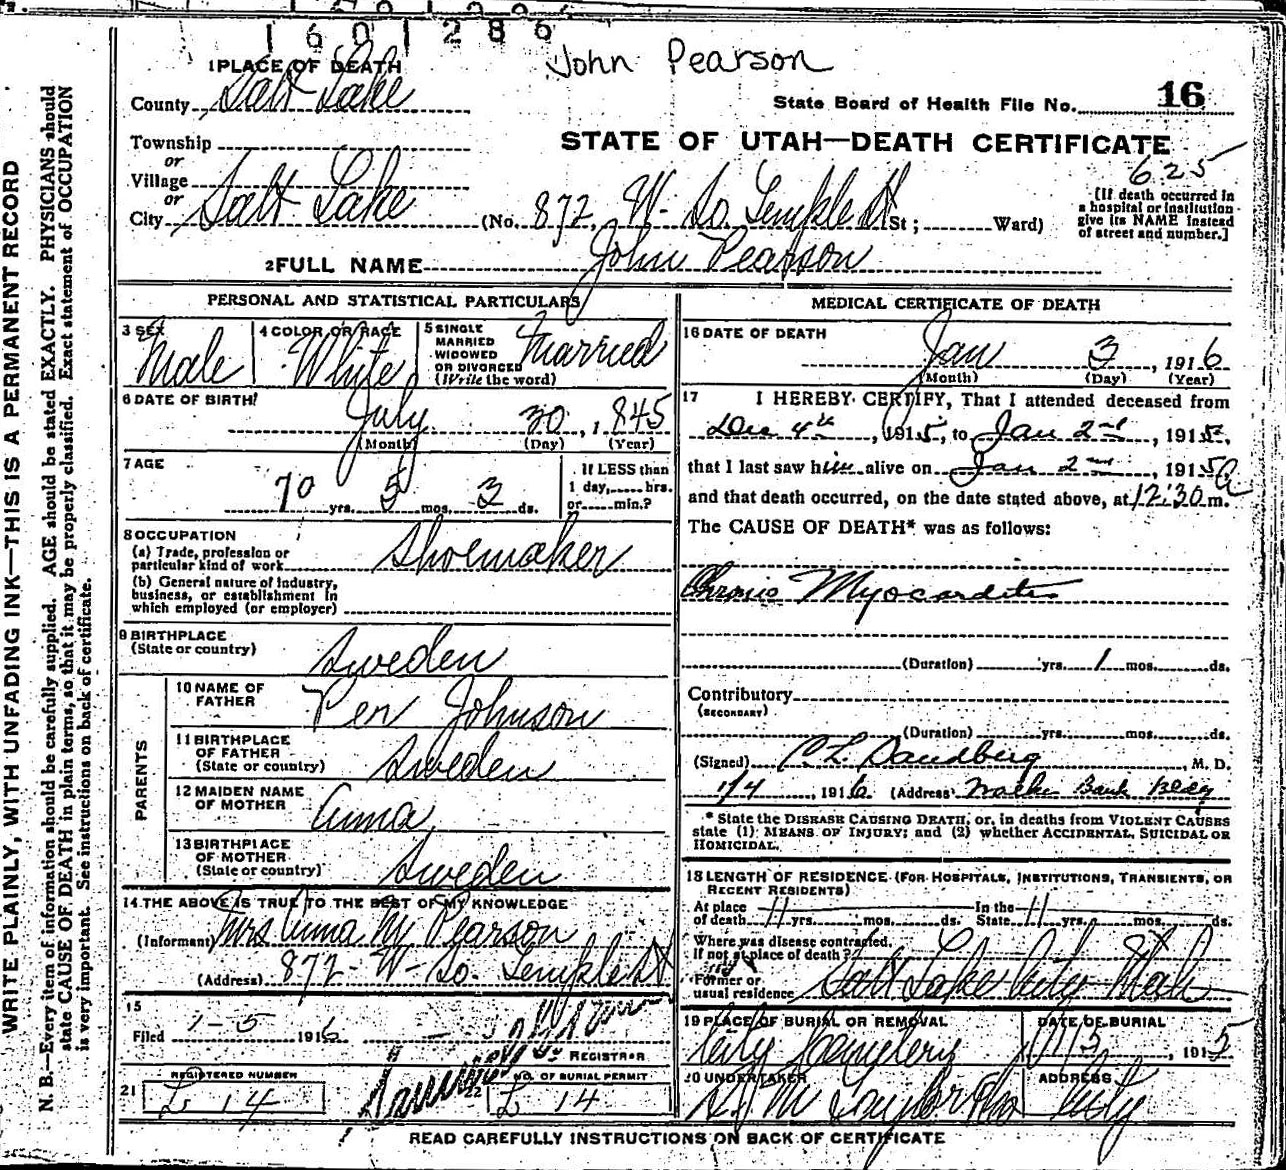 1601286
John Pearson
1 PLACE OF DEATH
County Salt Lake
State Board of Health File No. 16
STATE OF UTAH—DEATH CERTIFICATE
625
Township
or
Village
or
City Salt Lake (No. 872 W. So. Temple St St; Ward)
[If death occurred in a hospital or institution give its NAME instead of street and number.]
2 FULL NAME John Pearson
PERSONAL AND STATISTICAL PARTICULARS
3 SEX Male
4 COLOR OR RACE White
5 SINGLE MARRIED WIDOWED OR DIVORCED (Write the word) Married
6 DATE OF BIRTH
July 30, 1845
(Month) (Day) (Year)
7 AGE
70 yrs. 5 mos. 3 ds.
If LESS than 1 day, hrs. or min.?
8 OCCUPATION
(a) Trade, profession or particular kind of work Shoemaker
(b) General nature of industry, business, or establishment in which employed (or employer)
9 BIRTHPLACE
(State or country) Sweden
PARENTS
10 NAME OF FATHER Per Johnson
11 BIRTHPLACE OF FATHER (State or country) Sweden
12 MAIDEN NAME OF MOTHER Anna
13 BIRTHPLACE OF MOTHER (State or country) Sweden
14 THE ABOVE IS TRUE TO THE BEST OF MY KNOWLEDGE
(Informant) Mrs Anna M Pearson
(Address) 872 W- So. Temple St
15
Filed 1-5 1916
REGISTRAR
21 REGISTERED NUMBER
L 14
22 NO. OF BURIAL PERMIT
L 14
MEDICAL CERTIFICATE OF DEATH
16 DATE OF DEATH
Jan 3, 1916
(Month) (Day) (Year)
17 I HEREBY CERTIFY, That I attended deceased from
Dec 4th, 1915, to Jan 2nd, 1915,
that I last saw him alive on Jan 2nd, 1915
and that death occurred, on the date stated above, at 12:30 a m.
The CAUSE OF DEATH* was as follows:
Chronic Myocarditis
(Duration) yrs. 1 mos. ds.
Contributory
(SECONDARY)
(Duration) yrs. mos. ds.
(Signed) C. L. Sandberg, M. D.
1/4, 1916 (Address) Walker Bank Bldg
* State the DISEASE CAUSING DEATH, or, in deaths from VIOLENT CAUSES state (1) MEANS OF INJURY; and (2) whether ACCIDENTAL, SUICIDAL OR HOMICIDAL.
18 LENGTH OF RESIDENCE (FOR HOSPITALS, INSTITUTIONS, TRANSIENTS, OR RECENT RESIDENTS)
At place of death 11 yrs. mos. ds. In the State 11 yrs. mos. ds.
Where was disease contracted, if not at place of death?
Former or usual residence Salt Lake City Utah
19 PLACE OF BURIAL OR REMOVAL
City Cemetery
DATE OF BURIAL
, 1915
20 UNDERTAKER
S. M Taylor
ADDRESS
City
READ CAREFULLY INSTRUCTIONS ON BACK OF CERTIFICATE
WRITE PLAINLY, WITH UNFADING INK—THIS IS A PERMANENT RECORD
N. B.—Every item of information should be carefully supplied. AGE should be stated EXACTLY. PHYSICIANS should
state CAUSE OF DEATH in plain terms, so that it may be properly classified. Exact statement of OCCUPATION
is very important. See instructions on back of certificate.